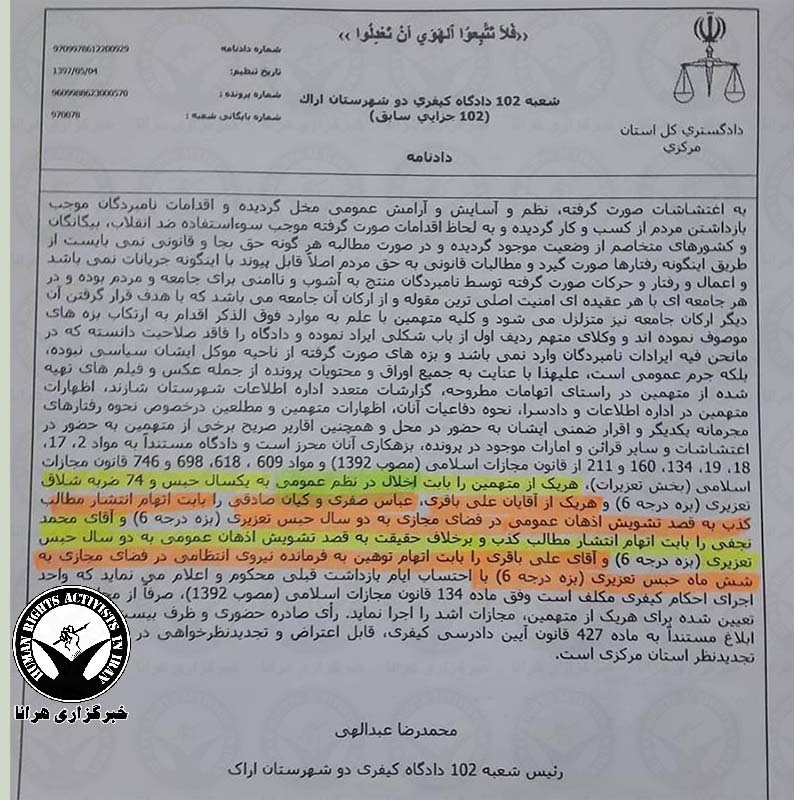 ‹‹فَلاَ تَتَّبِعُوا اَلْهَوَي اَنْ تَعْدِلُوا ››
شماره دادنامه 9709978612200929
تاریخ تنظیم: 1397/05/04
شماره پرونده : 9609988623000570
شماره بایگانی شعبه : 970078
شعبه 102 دادگاه کیفري دو شهرستان اراك
(102 جزايي سابق)
دادنامه
دادگستري کل استان
مرکزي
به اغتشاشات صورت گرفته، نظم و آسایش و آرامش عمومی مخل گردیده و اقدامات نامبردگان موجب
بازداشتن مردم از کسب و کار گردیده و به لحاظ اقدامات صورت گرفته موجب سوءاستفاده ضد انقلاب، بیگانگان
و کشورهای متخاصم از وضعیت موجود گردیده و در صورت مطالبه هر گونه حق بجا و قانونی نمی بایست از
طریق اینگونه رفتارها صورت گیرد و مطالبات قانونی به حق مردم اصلاً قابل پیوند با اینگونه جریانات نمی باشد
و اعمال و رفتار و حرکات صورت گرفته توسط نامبردگان منتج به آشوب و ناامنی برای جامعه و مردم بوده و در
هر جامعه ای با هر عقیده ای امنیت اصلی ترین مقوله و از ارکان آن جامعه می باشد که با هدف قرار گرفتن آن
دیگر ارکان جامعه نیز متزلزل می شود و کلیه متهمین با علم به موارد فوق الذکر اقدام به ارتکاب بزه های
موصوف نموده اند و وکلای متهم ردیف اول از باب شکلی ایراد نموده و دادگاه را فاقد صلاحیت دانسته که در
مانحن فیه ایرادات نامبردگان وارد نمی باشد و بزه های صورت گرفته از ناحیه موکل ایشان سیاسی نبوده،
بلکه جرم عمومی است، علیهذا با عنایت به جمیع اوراق و محتویات پرونده از جمله عکس و فیلم های تهیه
شده از متهمین در راستای اتهامات مطروحه، گزارشات متعدد اداره اطلاعات شهرستان شازند، اظهارات
متهمین در اداره اطلاعات و دادسرا، نحوه دفاعیات آنان، اظهارات متهمین و مطلعین درخصوص نحوه رفتارهای
مجرمانه یکدیگر و اقرار ضمنی ایشان به حضور در محل و همچنین اقاریر صریح برخی از متهمین به حضور در
اغتشاشات و سایر قرائن و امارات موجود در پرونده، بزهکاری آنان محرز است و دادگاه مستنداً به مواد 2، 17،
18، 19، 134، 160 و 211 از قانون مجازات اسلامی (مصوب 1392) و مواد 609 ، 618، 698 و 746 قانون مجازات
اسلامی (بخش تعزیرات)، هریک از متهمین را بابت اخلال در نظم عمومی به یکسال حبس و 74 ضربه شلاق
تعزیری (بزه درجه 6) و هریک از آقایان علی باقری، عباس صفری و کیان صادقی را بابت اتهام انتشار مطالب
کذب به قصد تشویش اذهان عمومی در فضای مجازی به دو سال حبس تعزیری (بزه درجه 6) و آقای محمد
نجفی را بابت اتهام انتشار مطالب کذب و برخلاف حقیقت به قصد تشویش اذهان عمومی به دو سال حبس
تعزیری (بزه درجه 6) و آقای علی باقری را بابت اتهام توهین به فرمانده نیروی انتظامی در فضای مجازی به
شش ماه حبس تعزیری (بزه درجه 6) با احتساب ایام بازداشت قبلی محکوم و اعلام می نماید که واحد
اجرای احکام کیفری مکلف است وفق ماده 134 قانون مجازات اسلامی (مصوب 1392)، صرفاً از
تعیین شده برای هریک از متهمین، مجازات اشد را اجرا نماید. رأی صادره حضوری و ظرف
ابلاغ مستنداً به ماده 427 قانون آیین دادرسی کیفری، قابل اعتراض و تجدیدنظرخواهی در
تجدیدنظر استان مرکزی است.
محمدرضا عبدالهی
رئیس شعبه 102 دادگاه کیفری دو شهرستان اراک
HUMAN RIGHTS ACTIVISTS IN IRAN
خبرگزاری هرانا